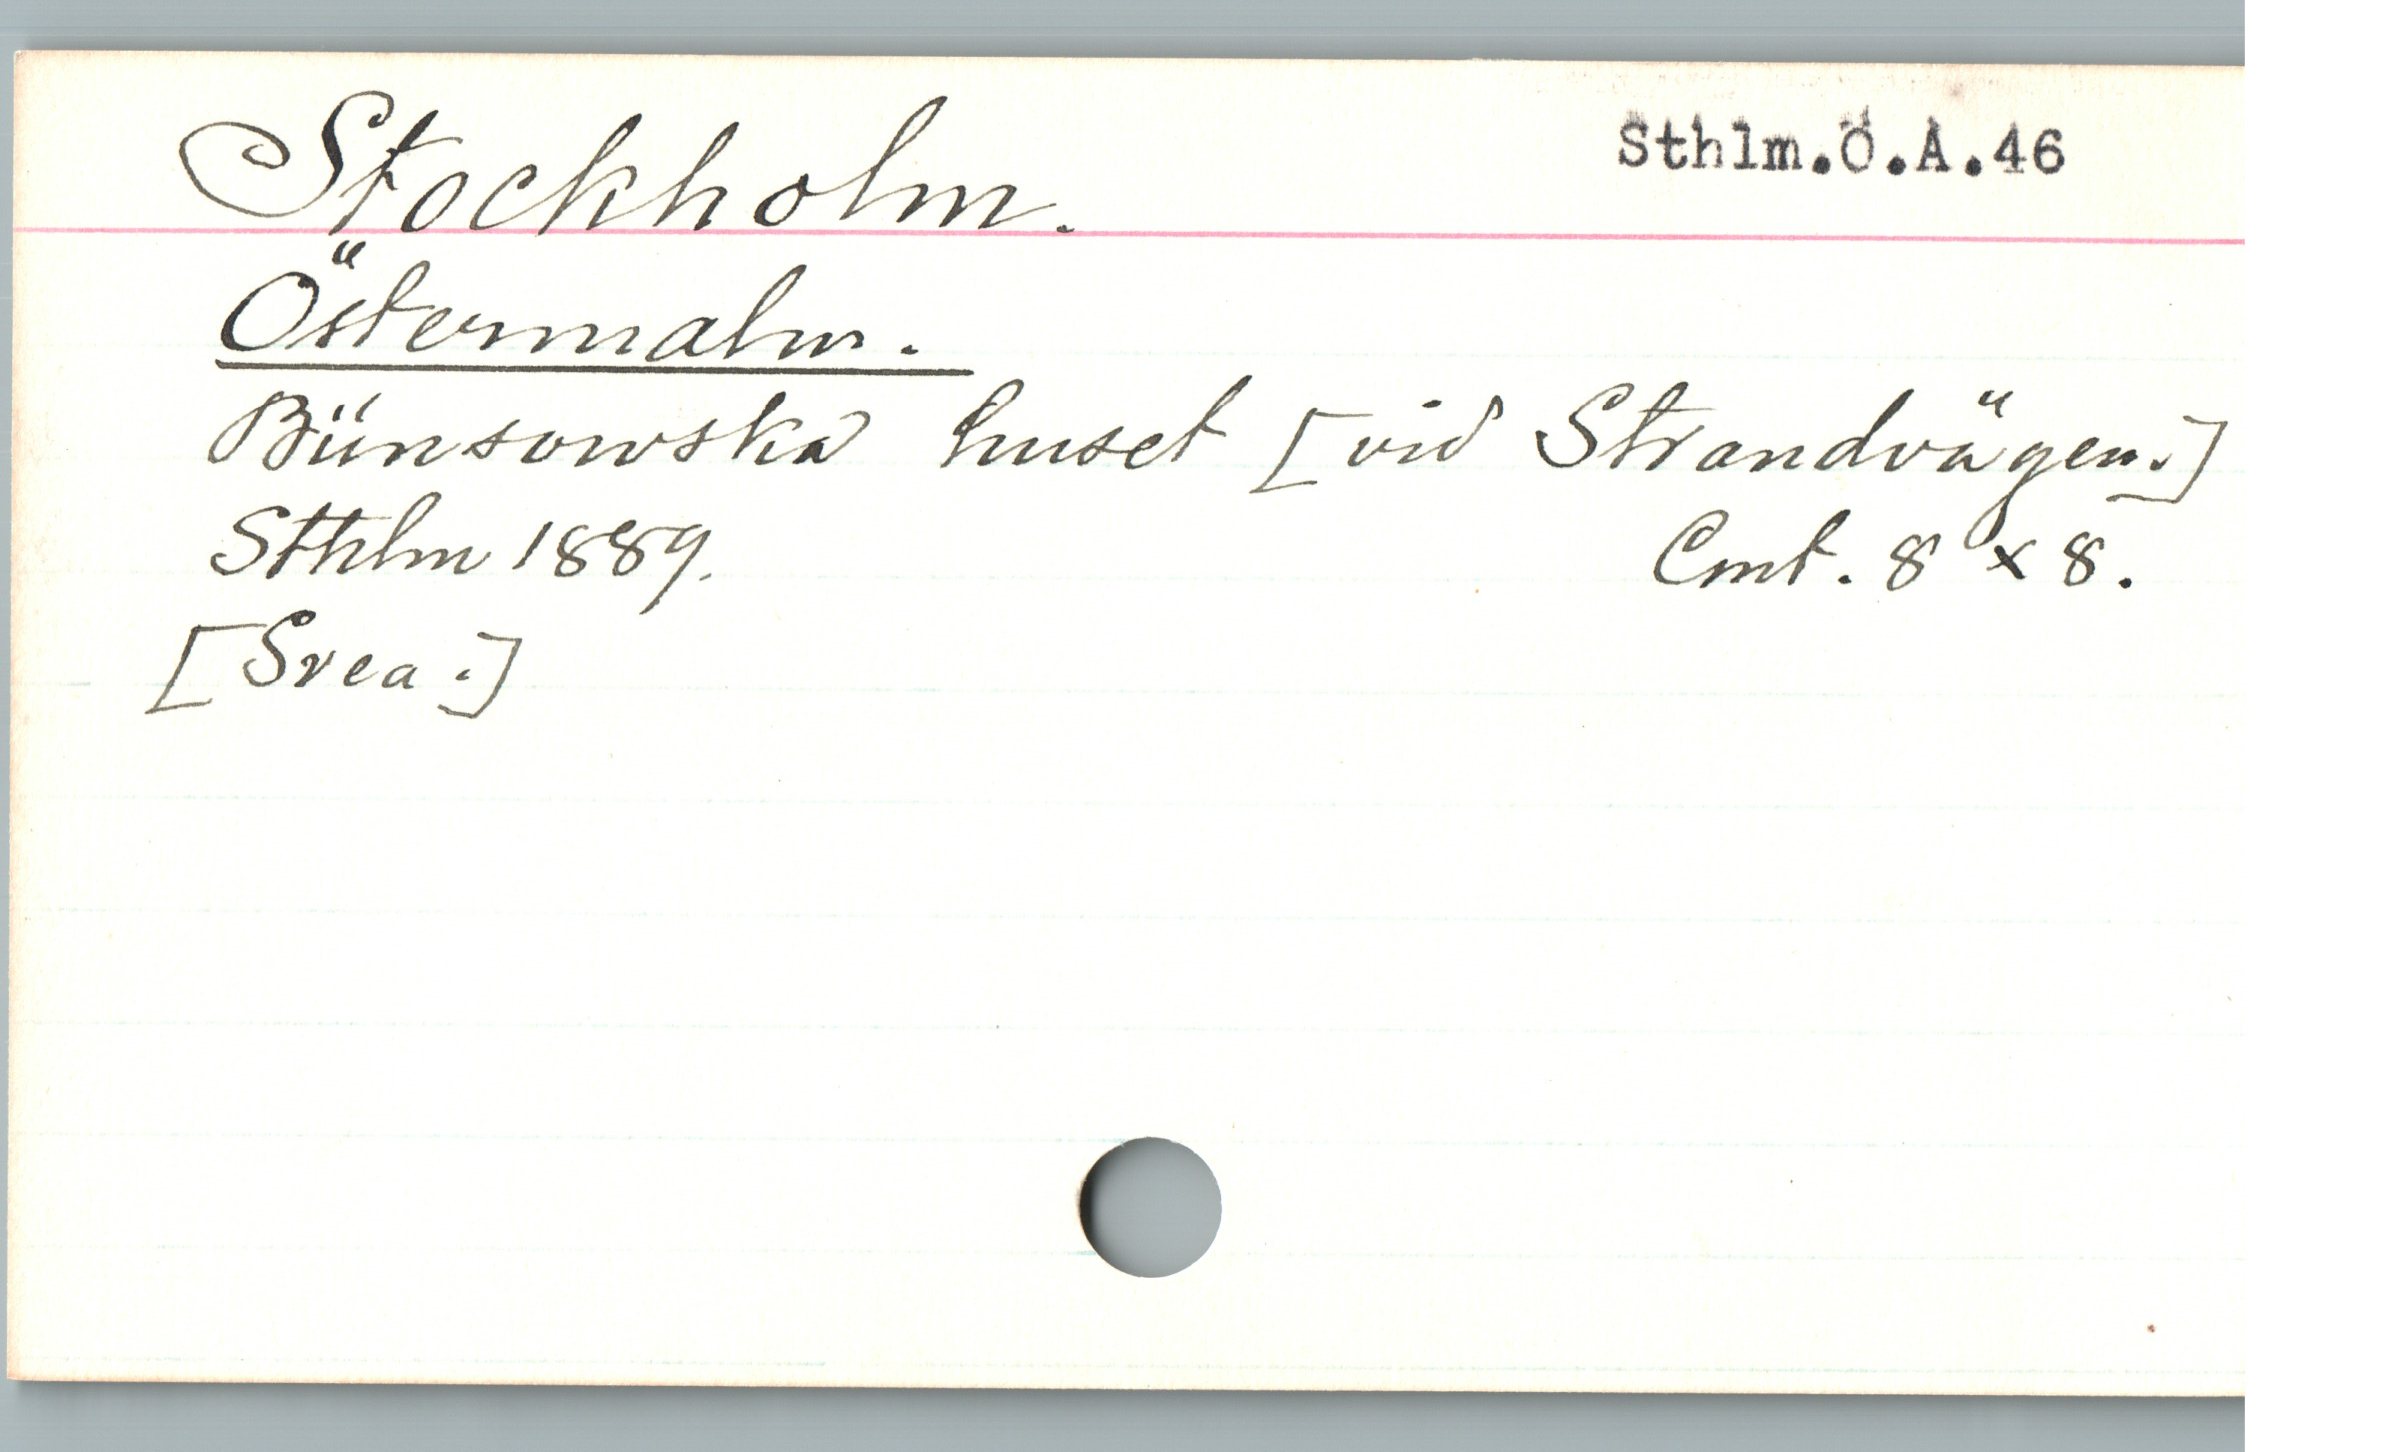 Stockholm.
Sthlm.Ö.A.46
Östermalm.
Bünsowska huset [vid Strandvägen.]
Sthlm 1889.
Cmt. 8 x 8.
[Svea.]